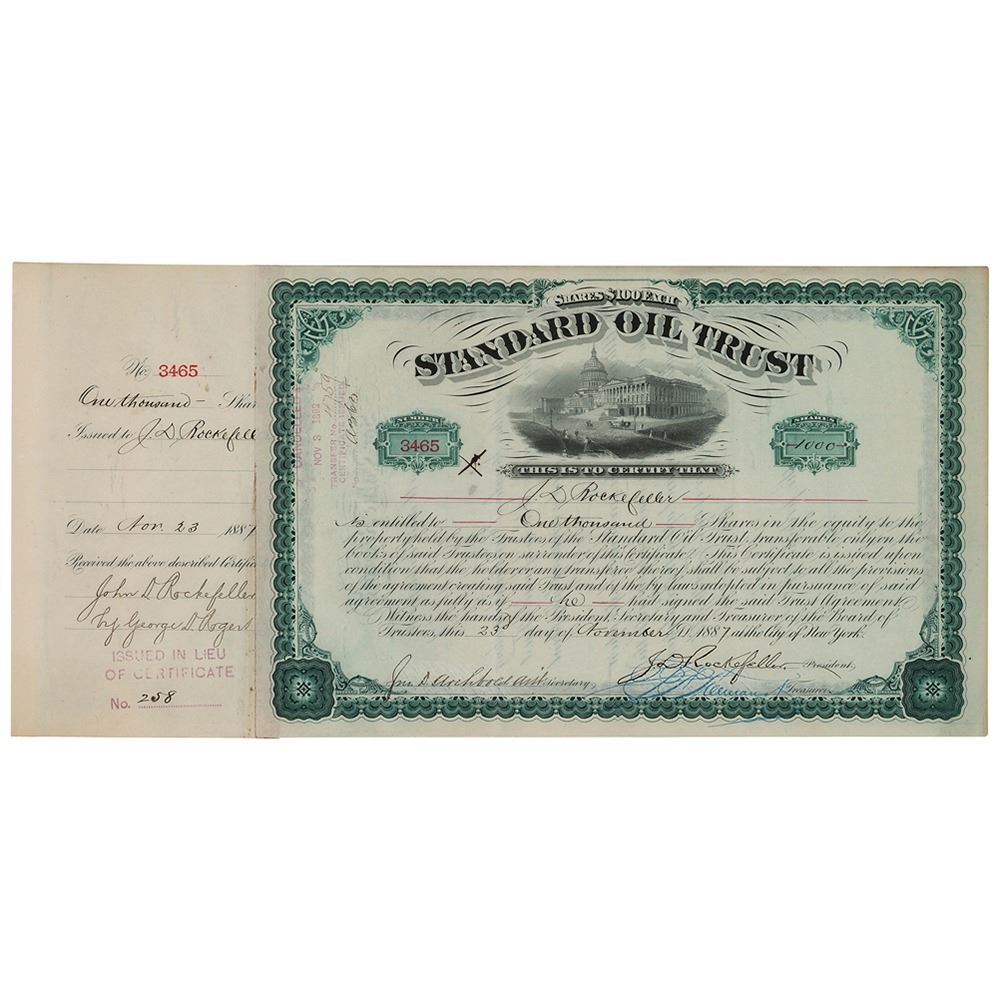 No. 3465
One thousand — Shar
Issued to J. D. Rockefelle
Date Nov. 23 1887
Received the above described Certific
John D. Rockefeller
by George D. Rogers
ISSUED IN LIEU
OF CERTIFICATE
No. 258
CANCELLED
NOV 3 1892
TRANSFER No.
CERTIFICATE
SHARES $100 EACH
STANDARD OIL TRUST
NUMBER
3465
SHARES
1000
THIS IS TO CERTIFY THAT
J. D. Rockefeller
Is entitled to One thousand Shares in the equity to the
property held by the Trustees of the Standard Oil Trust, transferable only on the
books of said Trustees on surrender of this Certificate. This Certificate is issued upon
condition that the holder or any transferee thereof shall be subject to all the provisions
of the agreement creating said Trust and of the by-laws adopted in pursuance of said
agreement as fully as if he had signed the said Trust Agreement.
Witness the hands of the President, Secretary and Treasurer of the Board of
Trustees, this 23d day of November A.D. 1887 at the City of New York.
J. D. Rockefeller President,
Jno. D. Archbold Asst. Secretary, Treasurer.